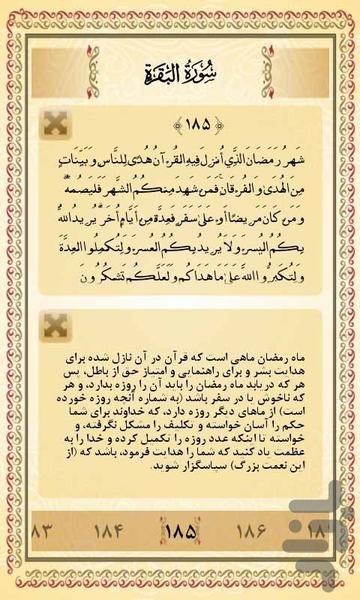 سُورَةُ البَقَرَةِ
﴿۱۸۵﴾
شَهْرُ رَمَضَانَ الَّذِيَ أُنزِلَ فِيهِ الْقُرْآنُ هُدًى لِّلنَّاسِ وَبَيِّنَاتٍ
مِّنَ الْهُدَى وَالْفُرْقَانِ فَمَن شَهِدَ مِنكُمُ الشَّهْرَ فَلْيَصُمْهُ
وَمَن كَانَ مَرِيضًا أَوْ عَلَى سَفَرٍ فَعِدَّةٌ مِّنْ أَيَّامٍ أُخَرَ يُرِيدُ اللّهُ
بِكُمُ الْيُسْرَ وَلاَ يُرِيدُ بِكُمُ الْعُسْرَ وَلِتُكْمِلُواْ الْعِدَّةَ
وَلِتُكَبِّرُواْ اللّهَ عَلَى مَا هَدَاكُمْ وَلَعَلَّكُمْ تَشْكُرُونَ
ماه رمضان ماهی است که قرآن در آن نازل شده برای
هدایت بشر و برای راهنمایی و امتیاز حق از باطل، پس
هر که دریابد ماه رمضان را باید آن را روزه بدارد، و هر
که ناخوش یا در سفر باشد (به شماره آنچه روزه خورده
است) از ماههای دیگر روزه دارد، که خداوند برای شما
حکم را آسان خواسته و تکلیف را مشکل نگرفته، و
خواسته تا اینکه عدد روزه را تکمیل کرده و خدا را به
عظمت یاد کنید که شما را هدایت فرمود، باشد که (از
این نعمت بزرگ) سپاسگزار شوید.
۸۳ ۱۸۴ ۱۸۵ ۱۸۶ ۱۸
بازار